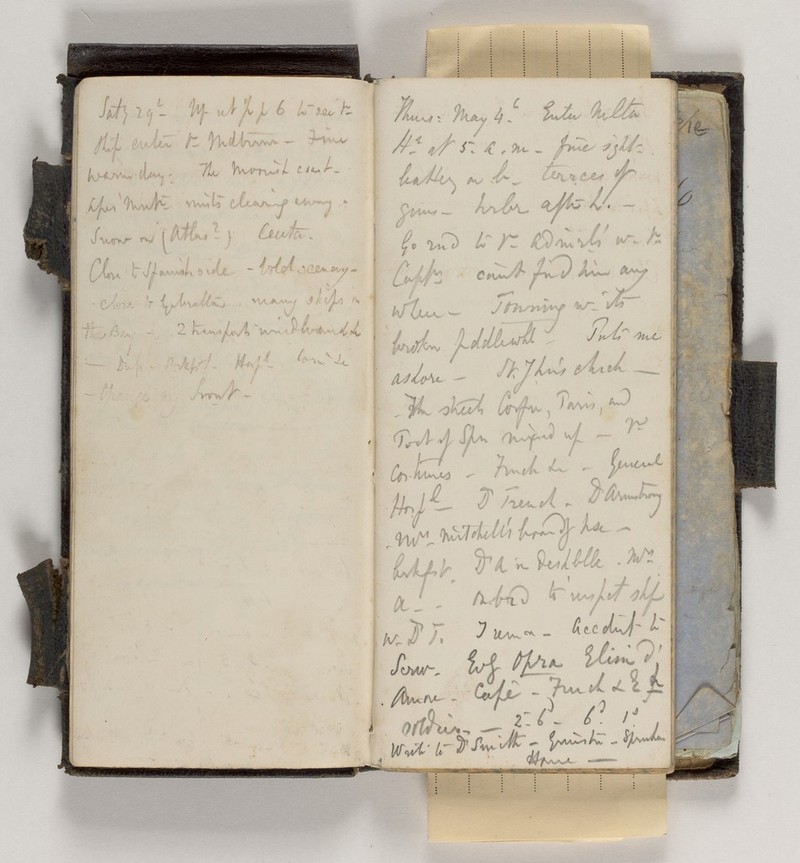 Saty 29th Up at p 6 to see the
ship enter the Meditrrn - Fine
warm day. The Moorish coast -
Apes' Mount mists clearing away.
Snow on (Atlas?) Ceuta.
Close to Spanish side - bold scenery -
close to Gibraltar many ships in
the Bay - 2 transports windbound &c
Hospl
- Change
Thurs: May 4th Enter Malta
Hr at 5. a.m. fine sight -
battery on b- terraces of
guns - harbr aftr h. -
Go rnd to the Admirals' w. the
Captn cannt find him any
where - Towing w. its
broken paddlewhl - Puts me
ashore - St. John's church -
The streets Corfu, Paris, and
Port of Spn mixed up - The
costumes - French &c - General
Hospl - Dr French - Dr Armstrong
Mrs. Mitchell's boardg hse -
brkfst. Dr A in deshblle. Mrs
A - - onbrd to inspct ship
w. Dr T. I remn - Accdnt to
Screw. Evg Opra Elisir d'
Amore - Café - Frnch & Eg
soldiers - 2s.6d - 6d 1s
Write to Dr Smith - - Spenham
Home -